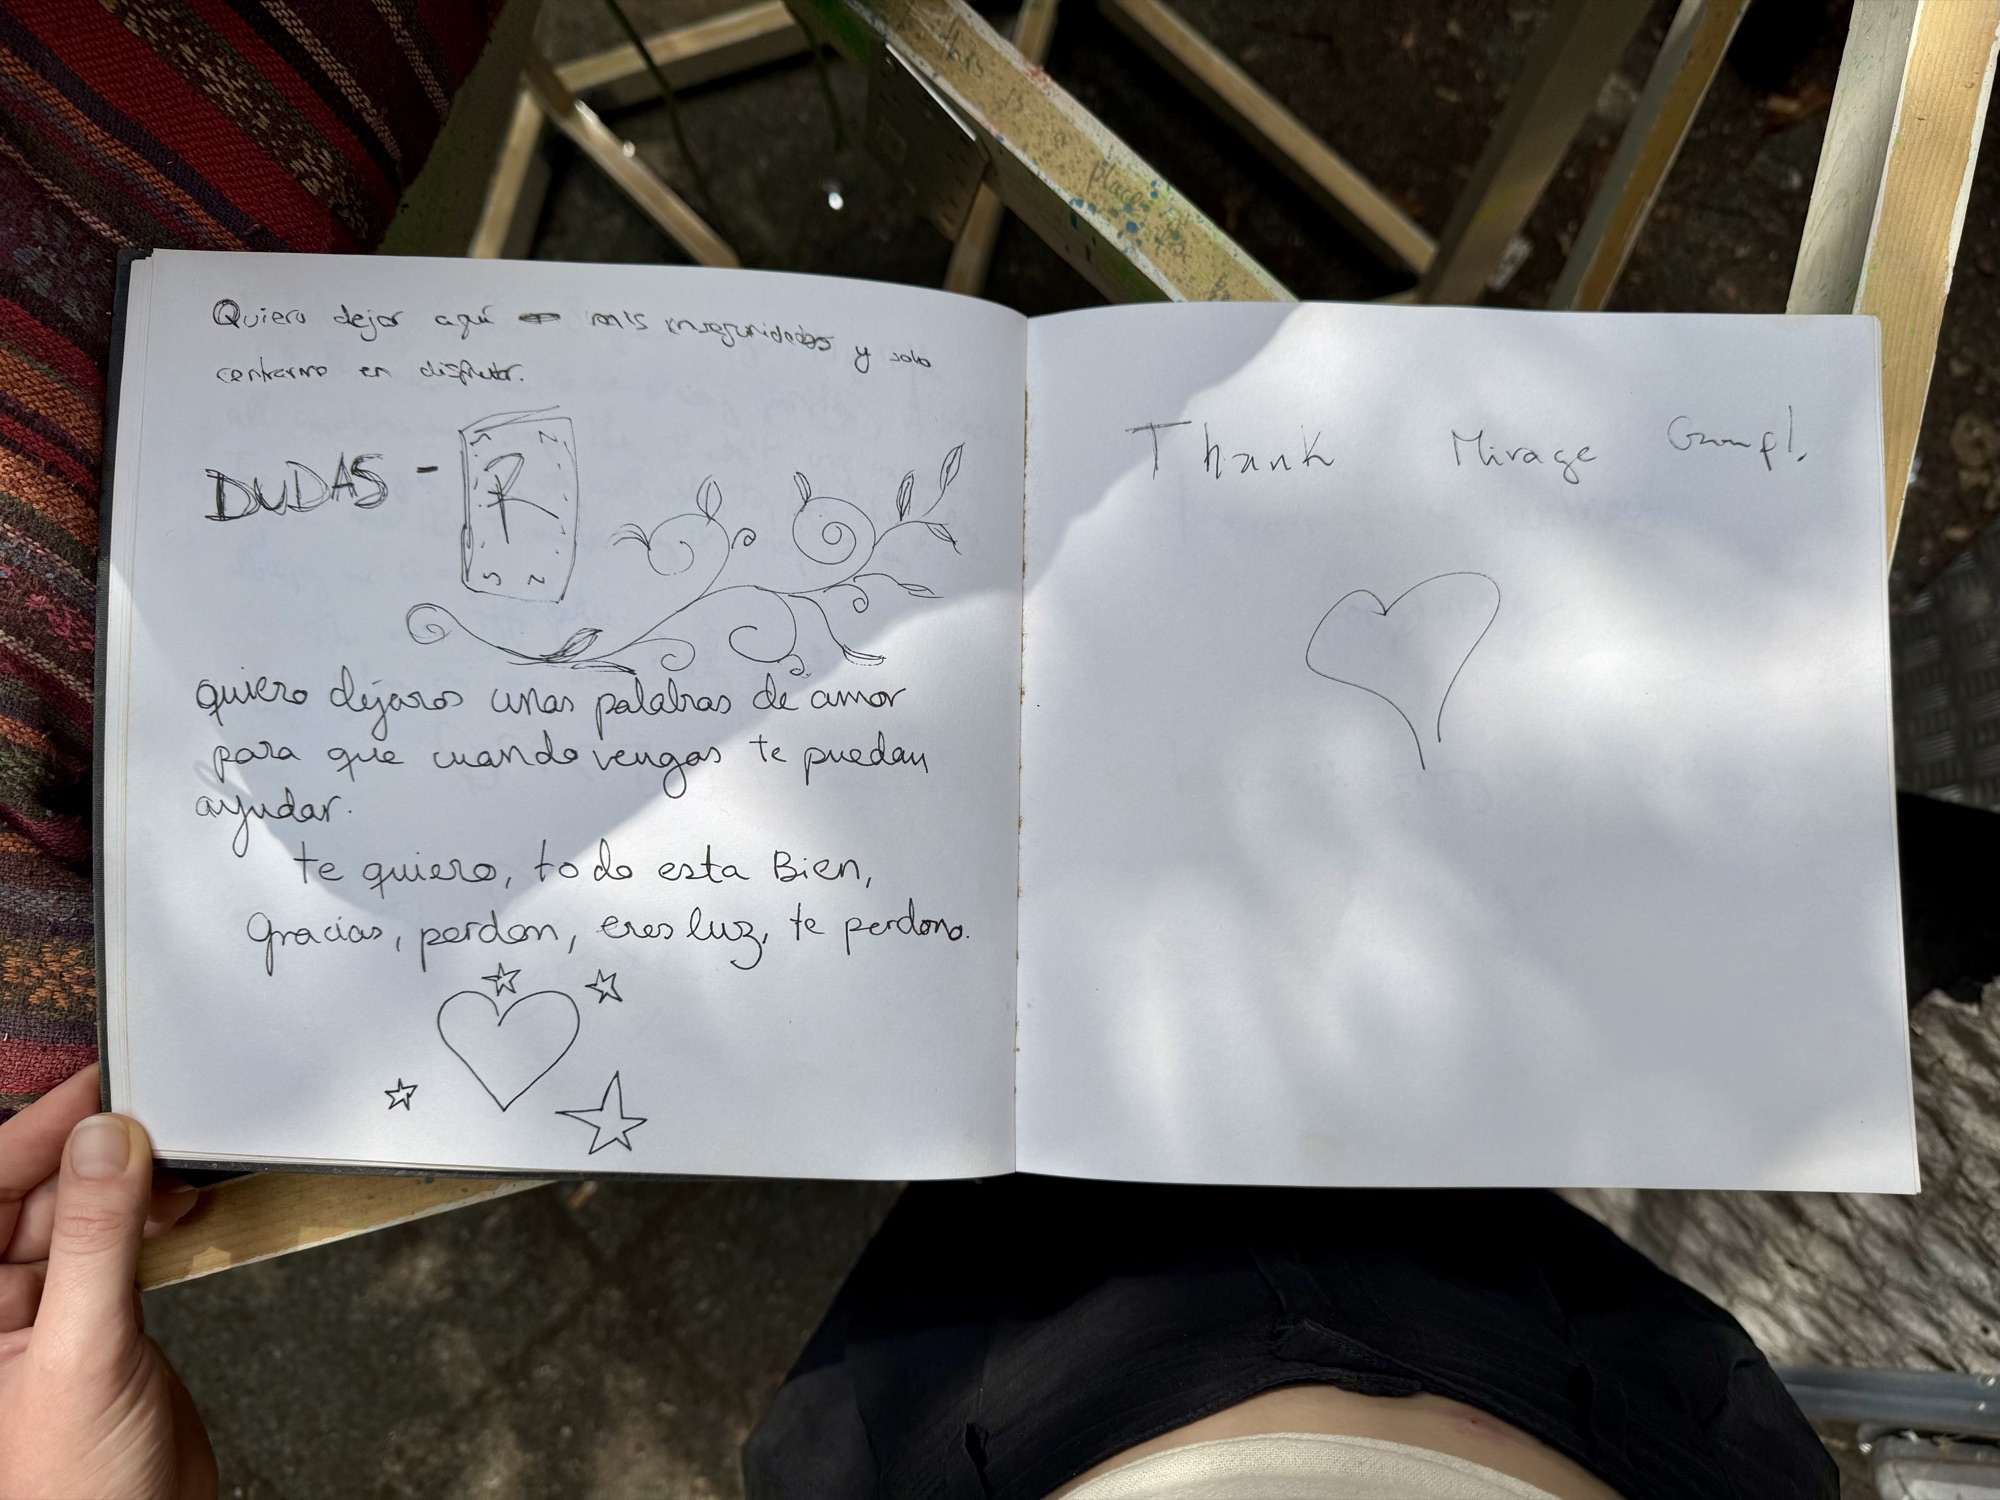 Quiero dejar aquí mis inseguridades y solo
centrarme en disfrutar.
DUDAS - R
quiero dejaros unas palabras de amor
para que cuando vengas te puedan
ayudar.
te quiero, todo esta Bien,
Gracias, perdon, eres luz, te perdono.
Thank Mirage
place